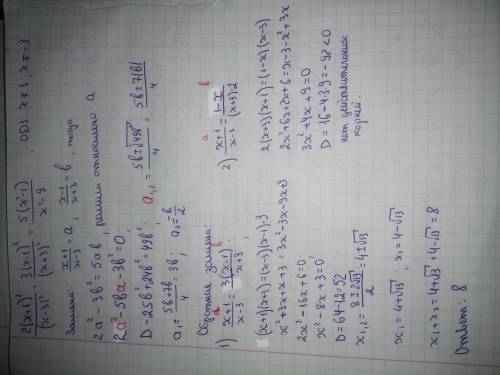 2(x+1)²/(x-3)² - 3(x-1)²/(x+3)² = 5(x²-1)/(x²-9), ОДЗ x≠3, x≠-3
Замена: (x+1)/(x-3) = a, (x-1)/(x+3) = b, тогда
2a²-3b²=5ab, решим относительно a
2a²-5ba-3b²=0,
D=25b²+24b²=49b²; a₁,₂ = (5b±√49b²)/4 = (5b±7|b|)/4
a₁ = (5b+7b)/4 = 3b, a₂ = -b/2
Обратная замена:
1) (x+1)/(x-3) = 3(x-1)/(x+3)
(x+1)(x+3)=(x-3)(x-1)·3
x²+3x+x+3=3x²-3x-9x+9
2x²-16x+6=0
x²-8x+3=0
D=64-12=52
x₁,₂ = (8±2√13)/2 = 4±√13
x₁=4+√13; x₂=4-√13
x₁+x₂=4+√13+4-√13=8
Ответ: 8
2) (x+1)/(x-3) = (1-x)/((x+3)·2)
2(x+3)(x+1)=(1-x)(x-3)
2x²+6x+2x+6=x-3-x²+3x
3x²+4x+9=0
D=16-4·3·9=-92<0
нет действительных
корней.